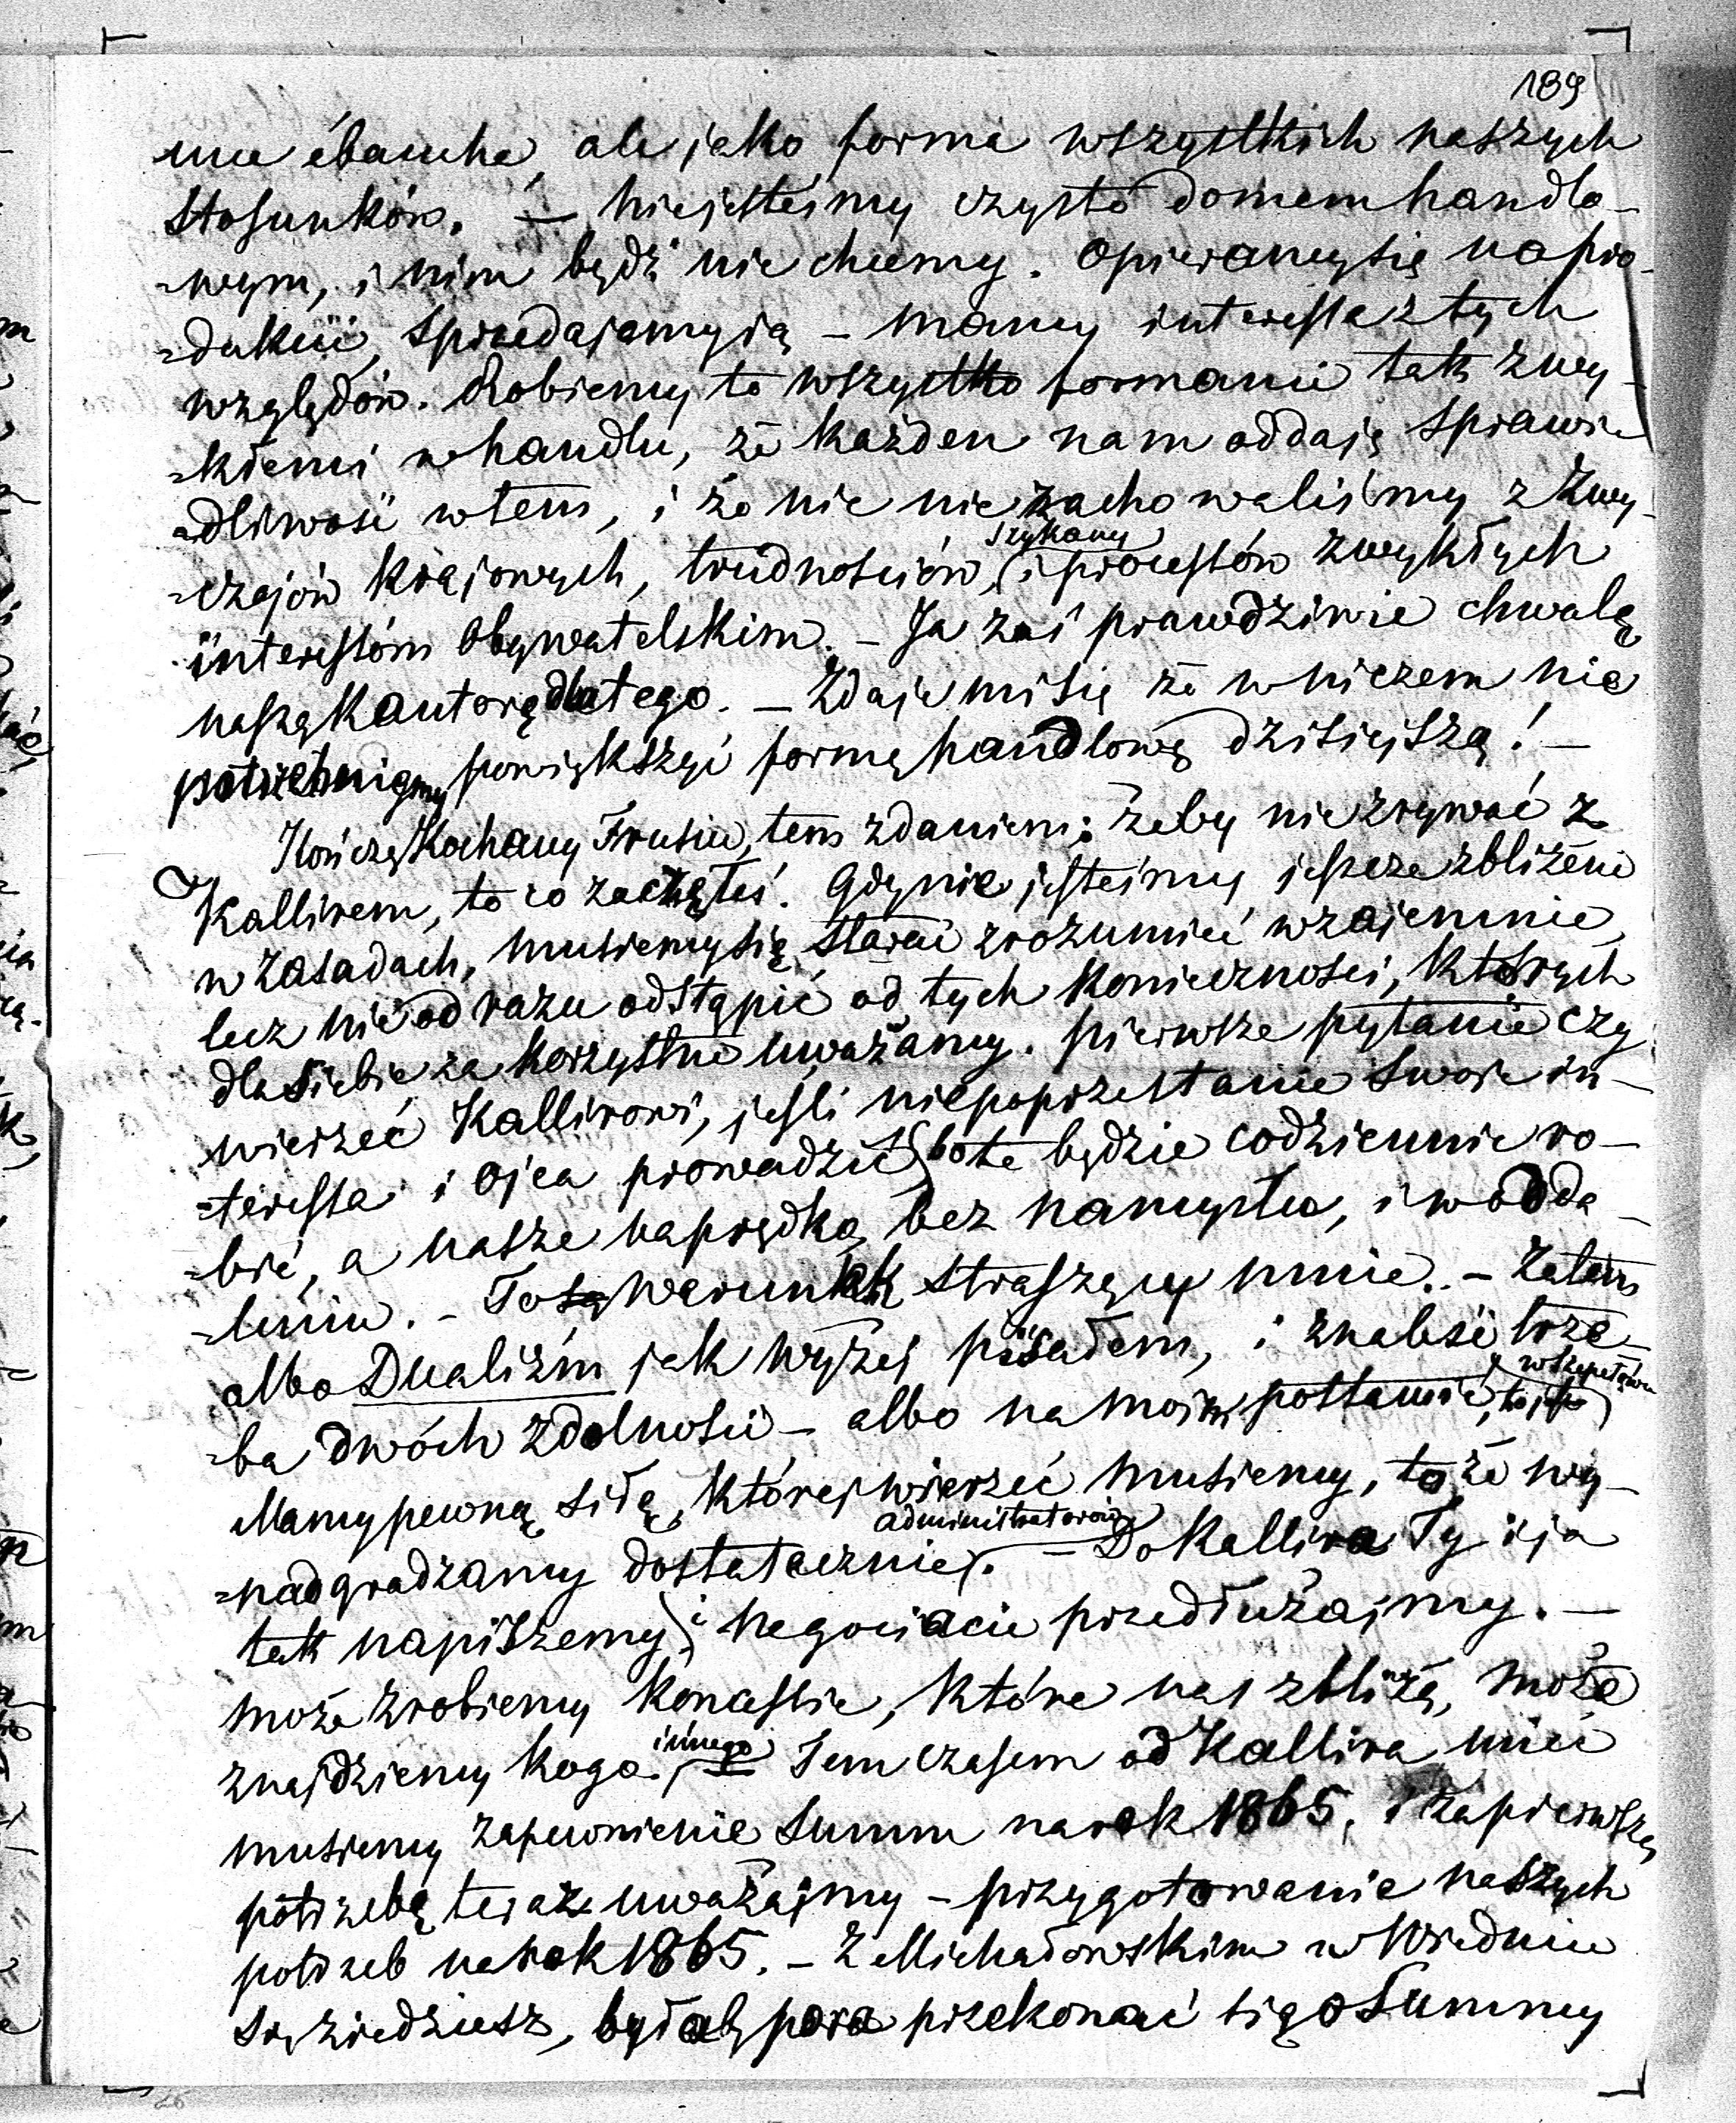 189
une ébauche, ale jako forma wszystkich naszych
stosunków. — Niejesteśmy czysto domem handlo-
-wym, i nim bydź nie chcemy. Opieramy się na pro-
-dukcii, sprzedajemy ją — mamy interessa z tych
względów. Robiemy to wszystko formami tak zwy-
-kłemi w handlu, że każden nam oddaję sprawie
-dliwość w tem, i że nic nie zachowaliśmy z zwy-
szykany
-czajów krajowych, trudnościów, i processów zwykłych
interessom Obywatelskim. — Ja zaś prawdziwie chwalę
naszą Kantorę dla tego. — Zdaje mi się że w niczem nie
potrzebujemy powiększyć formę handlową dzisiejszą! —
Kończę Kochany Frusiu, tem zdaniem: żeby nie zrywać z
Kallirem, to co zacząłeś. Gdy nie jesteśmy jeszcze zbliżeni
w zasadach, musiemy się starać zrozumieć wzajemnie,
lecz nie od razu odstąpić od tych konieczności, których
dla siebie za korzystne uważamy. Pierwsze pytanie czy
wierzeć Kallirowi, jeśli niepoprzestanie swoje in-
-teressa i Ojca prowadzić (bo te będzie codziennie ro-
-bić, a nasze naprędką bez namysłu, i w odda-
-leniu. — To są warunek straszący mnie. — Zatem
albo Dualizm jak wyżej pisałem, i znaleść trze-
w Szepetówce
-ba dwóch zdolności — albo na moim postawić, to jest
Mamy pewną siłę, której wierzeć musiemy, to że wy-
administratorów
-nadgradzamy dostatecznie. — Do Kallira Ty i ja
tak napiszemy, i negociacie przedłużajmy. —
może zrobiemy koncessie, które nas zbliżą, może
innego
znajdziemy kogo. — Tem czasem od Kallira mieć
musiemy zapewnienie summ na rok 1865, i za pierwszą
potrzebę teraz uważajmy — przygotowanie naszych
potrzeb na rok 1865. — Z Michałowskim w Wiedniu
się zjedziesz, byłaby pora przekonać się o Summy